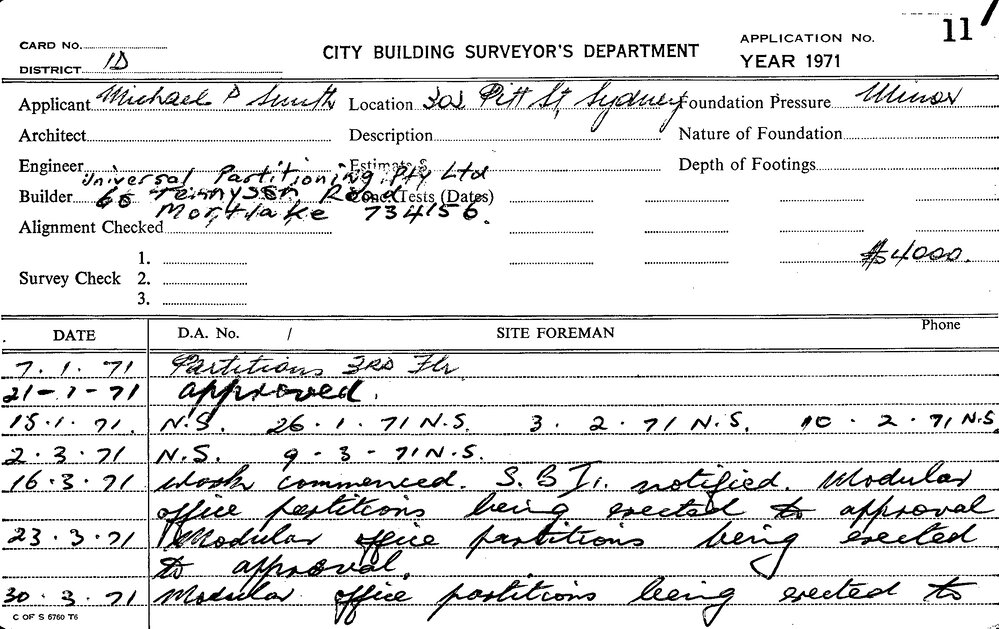 11
CARD No. CITY BUILDING SURVEYOR'S DEPARTMENT APPLICATION No.
DISTRICT 1D YEAR 1971
Applicant Michael P Smith Location 302 Pitt St, Sydney Foundation Pressure Minor
Architect Description Nature of Foundation
Engineer Estimate $ Depth of Footings
Universal Partitioning Pty Ltd
Builder 60 Tennyson Road Conc. Tests (Dates)
Mortlake 734156.
Alignment Checked
$4000.
1.
Survey Check 2.
3.
DATE D.A. No. / SITE FOREMAN Phone
7.1.71 Partitions 3RD Flr.
21-1-71 approved.
15.1.71. N.S. 26.1.71 N.S. 3.2.71 N.S. 10.2.71 N.S.
2.3.71 N.S. 9-3-71 N.S.
16.3.71 Work commenced. S.B.I. notified. Modular
office partitions being erected to approval
23.3.71 Modular office partitions being erected
to approval.
30.3.71 Modular office partitions being erected to
C OF S 6760 T6